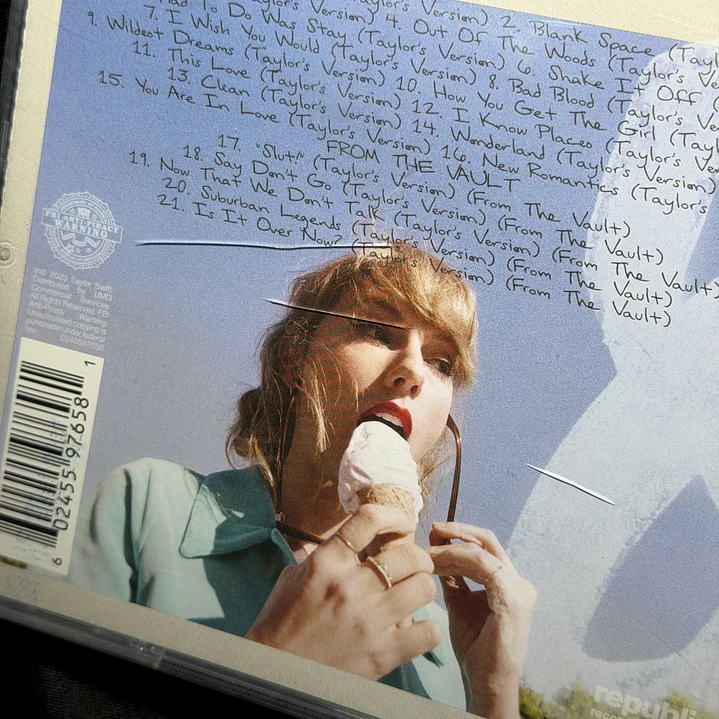 (Taylor's Version) 2. Blank Space
Version) 4. Out Of The Woods (Taylor's
Had To Do Was Stay (Taylor's Version) 6. Shake It Off (
7. I Wish You Would (Taylor's Version) 8. Bad Blood (Taylor's
9. Wildest Dreams (Taylor's Version) 10. How You Get The Girl
11. This Love (Taylor's Version) 12. I Know Places (Taylor's
13. Clean (Taylor's Version) 14. Wonderland (Taylor's
15. You Are In Love (Taylor's Version) 16. New Romantics (Taylor's
FROM THE VAULT
17. "Slut!" (Taylor's Version) (From The Vault)
18. Say Don't Go (Taylor's Version) (From The Vault)
19. Now That We Don't Talk (Taylor's Version) (From The Vault)
20. Suburban Legends (Taylor's Version) (From The Vault)
21. Is It Over Now? (Taylor's Version) (From The Vault)
FBI ANTI-PIRACY
WARNING
2023 Taylor Swift
Distributed by UMG
Commercial Services.
All Rights Reserved. FBI
Anti-Piracy Warning:
Unauthorized copying is
punishable under federal
law. 0245597658
6 02455 97658 1
republic